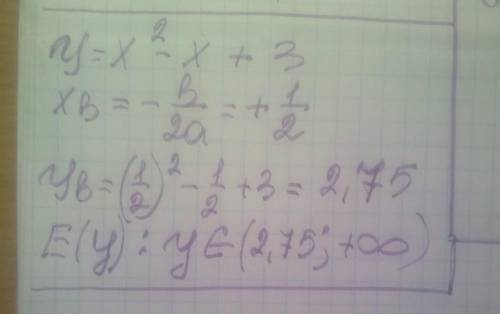 y = x² - x + 3
xв = - в/2a = + 1/2
yв = (1/2)² - 1/2 + 3 = 2,75
E(y) : y ∈ (2,75; +∞)